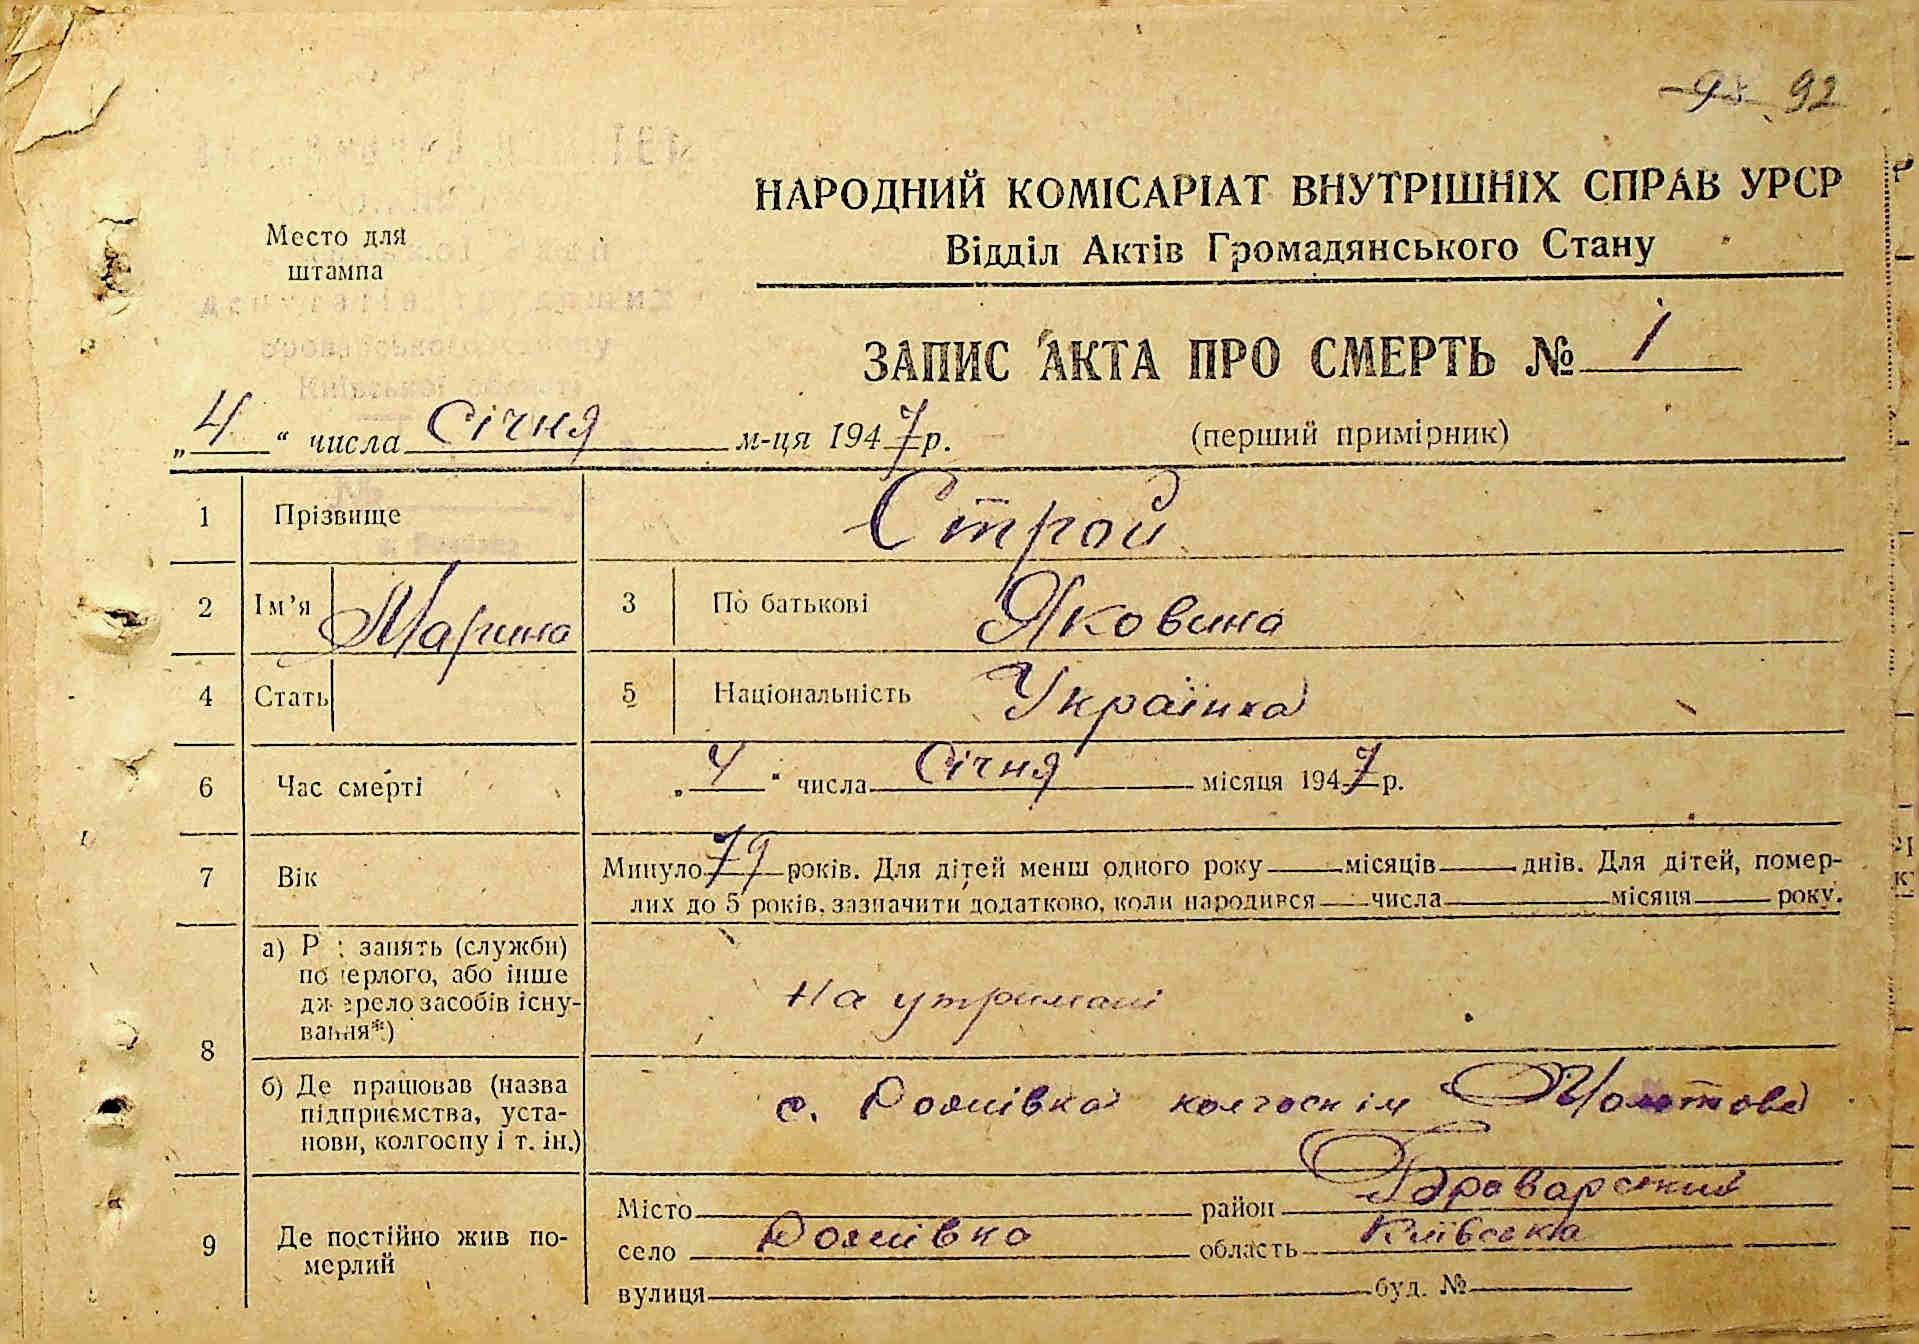 92
НАРОДНИЙ КОМІСАРІАТ ВНУТРІШНІХ СПРАВ УРСР
Відділ Актів Громадянського Стану
Место для
штампа
ЗАПИС АКТА ПРО СМЕРТЬ № 1
„4“ числа Січня м-ця 1947 р. (перший примірник)
1 Прізвище Строй
2 Ім’я Марина 3 По батькові Яковина
4 Стать 5 Національність Українка
6 Час смерті „4“ числа Січня місяця 1947 р.
7 Вік Минуло 79 років. Для дітей менш одного року місяців днів. Для дітей, помер-
лих до 5 років, зазначити додатково, коли народився числа місяця року.
8 а) занять (служби)
або інше
засобів існу-
вання*)
На утримані
б) Де працював (назва
підприємства, уста-
нови, колгоспу і т. ін.)
с. колгосп ім Молотова
9 Де постійно жив по-
мерлий
Місто район Броварський
село область Київська
вулиця буд. №